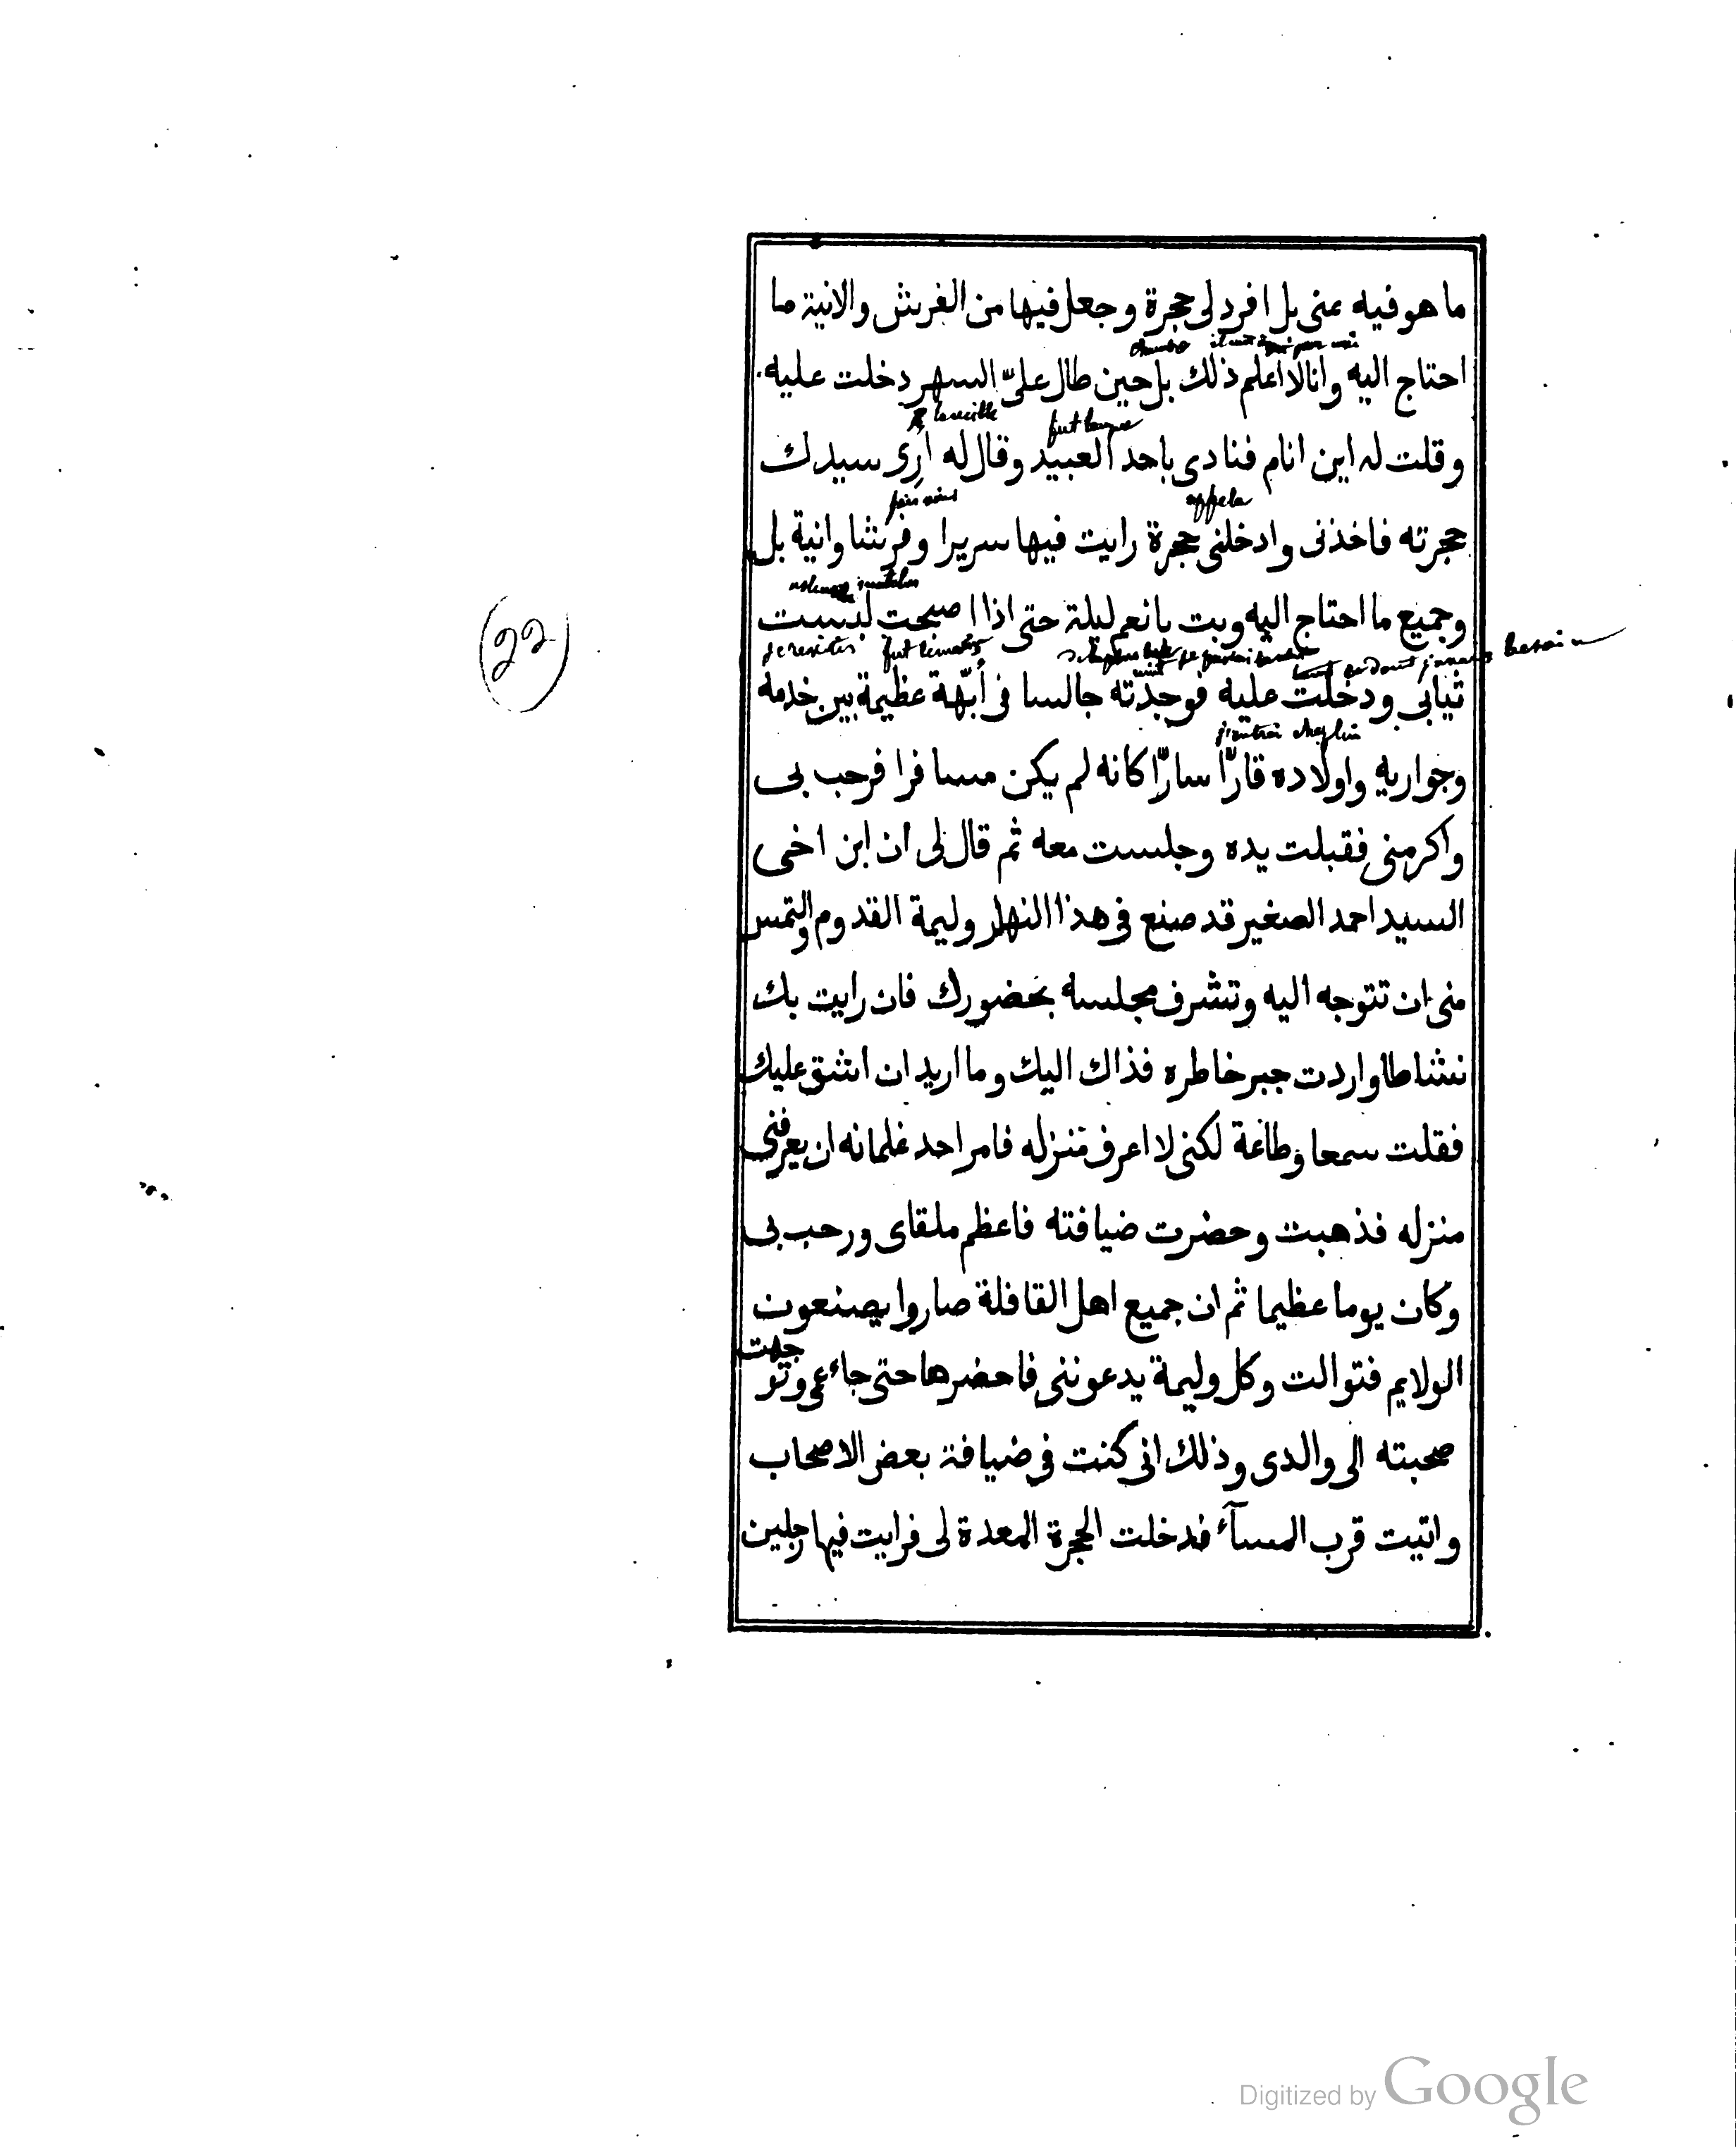 ما هو فيه عنى بل افرد لى حجرة وجعل فيها من الفرش والانية ما
chambre
احتاج اليه وانا لا اعلم ذلك بل حين طال علىّ السهر دخلت عليه
la veille fut longue
وقلت له اين انام فنادى باحد العبيد وقال له أرِى سيدك
appela
حجرته فاخذنى وادخلنى حجرة رايت فيها سريرا وفرشا وانية بل
وجميع ما احتاج اليه وبت بانعم ليلة حتى اذا اصبحت لبست
je revêtis fut besoin
ثيابى ودخلت عليه فوجدته جالسا فى أُبّهة عظيمة بين خدمه
j'entrai chez lui
وجواريه واولاده قارّا سارّا كانه لم يكن مسافرا فرحب بى
واكرمنى فقبلت يده وجلست معه ثم قال لى ان ابن اخى
السيد احمد الصغير قد صنع فى هذا النهار وليمة القدوم والتمس
منى ان تتوجه اليه وتشرف مجلسه بحضورك فان رايت بك
نشاطا واردت جبر خاطره فذاك اليك وما اريد ان اشق عليك
فقلت سمعا وطاعة لكنى لا اعرف منزله فامر احد غلمانه ان يعرفنى
منزله فذهبت وحضرت ضيافته فاعظم ملقاى ورحب بى
وكان يوما عظيما ثم ان جميع اهل القافلة صاروا يصنعون
الولايم فتوالت وكل وليمة يدعوننى فاحضرها حتى جاء عمى وتوجهت
صحبته الى والدى وذلك انى كنت فى ضيافة بعض الاصحاب
واتيت قرب المسآء فدخلت الحجرة المعدة لى فرايت فيها رجلين
(22)
Digitized by Google